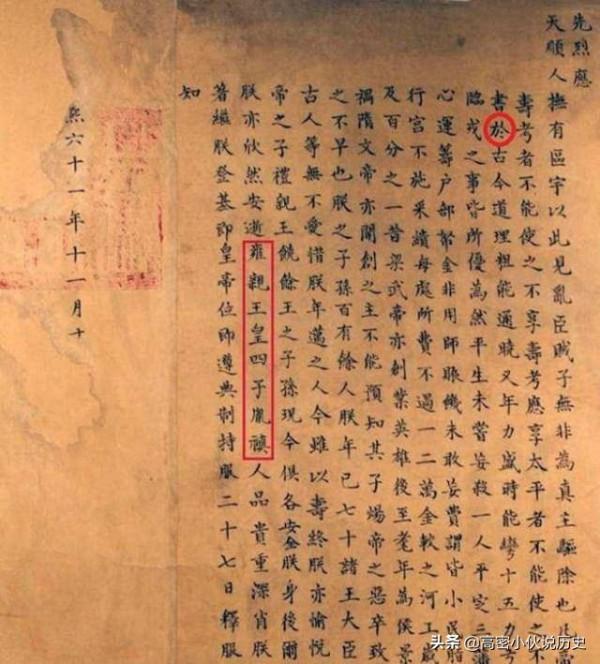 先烈應
天順人撫有區宇以此見亂臣賊子無非為真主驅除也
壽考者不能使之不享壽考應享太平者不能使之不
書於古今道理粗能通曉又年力盛時能彎十五力
臨戎之事皆所優為然平生未嘗妄殺一人平定三
心運籌戶部帑金非用師賑饑未敢妄費謂皆小民脂
行宮不施采繢每處所費不過一二萬金較之河工
及百分之一昔梁武帝亦創業英雄後至耄年為侯景
禍隋文帝亦開創之主不能預知其子煬帝之惡卒致
之不早也朕之子孫百有餘人朕年已七十諸王大臣
古人等無不愛惜朕年邁之人今雖以壽終朕亦愉悅
帝之子禮親王饒餘王之子孫現今俱各安全朕身後爾
朕亦欣然安逝雍親王皇四子胤禛人品貴重深肖朕
著繼朕登基即皇帝位即遵典制持服二十七日釋服
知
熙六十一年十一月十
头条 @高密小伙说历史